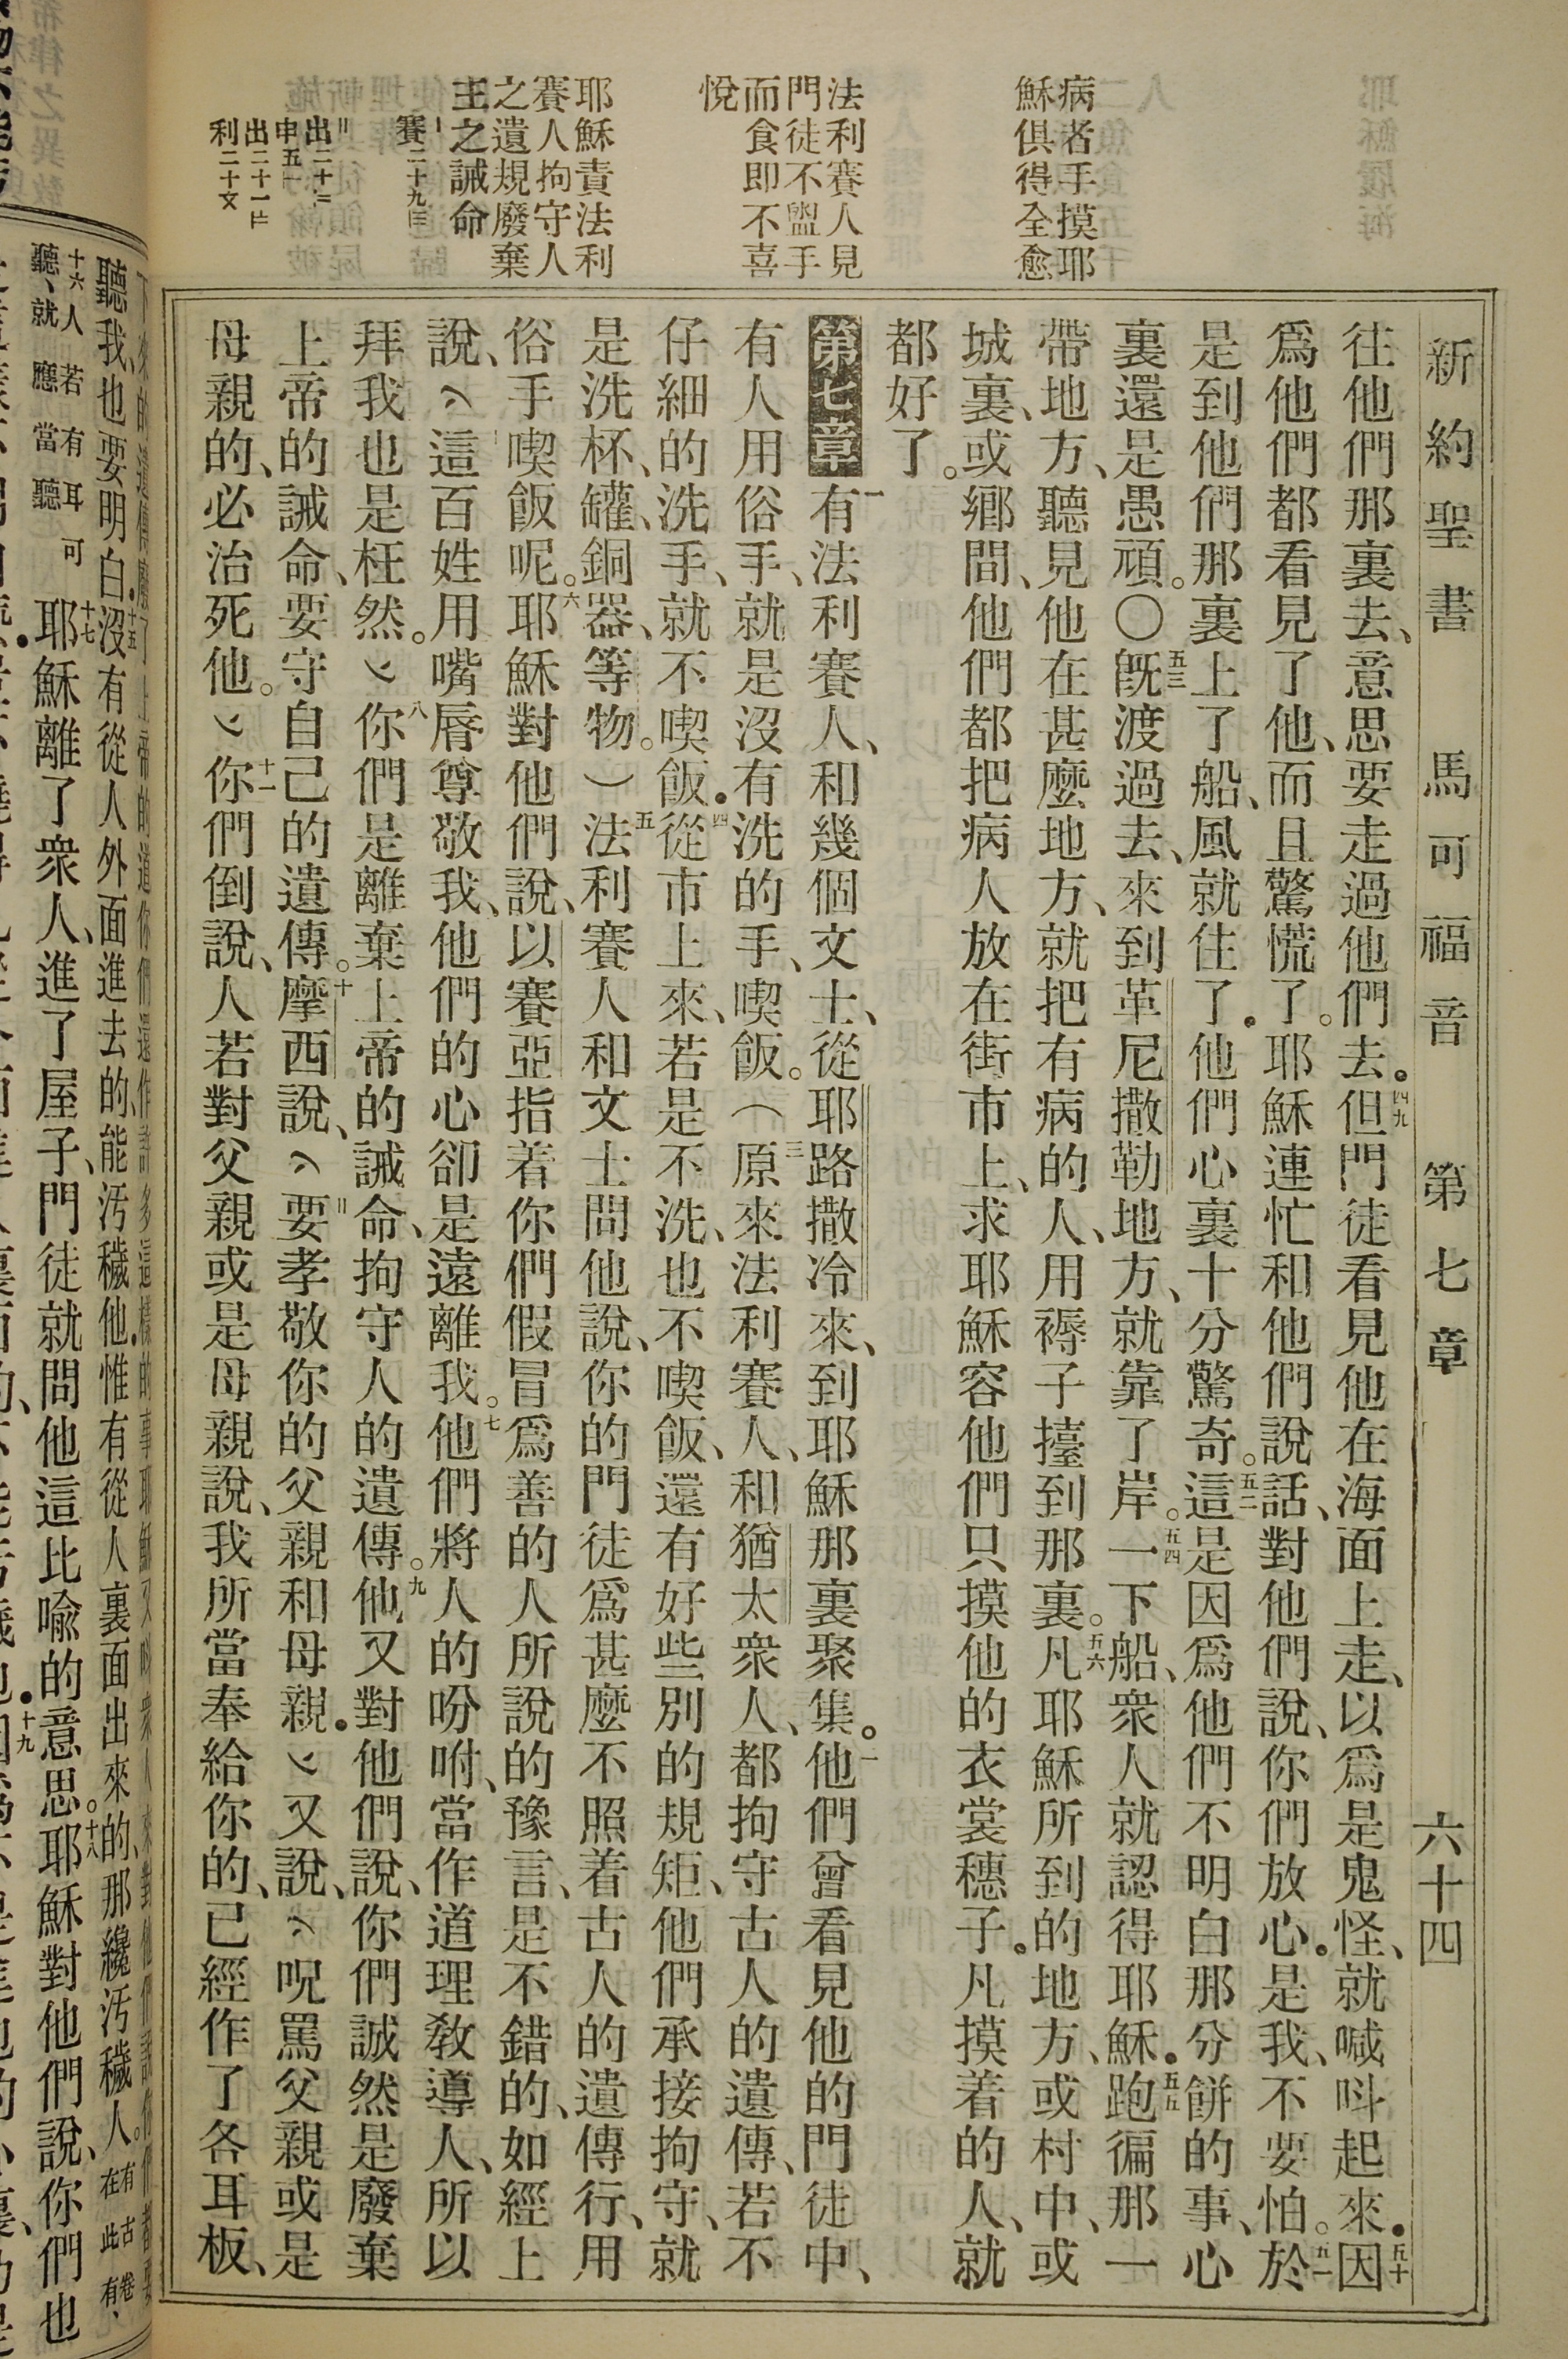 新約聖書 馬可福音 第七章 六十四
病者手摸耶
穌俱得全愈
法利賽人見
門徒不盥手
而食即不喜
悅
耶穌責法利
賽人拘守人
之遺規廢棄
主之誡命
往他們那裏去、意思要走過他們去.四九但門徒看見他在海面上走、以爲是鬼怪、就喊呌起來.五十因
爲他們都看見了他、而且驚慌了。耶穌連忙和他們說話、對他們說、你們放心.是我、不要怕。五一於
是到他們那裏上了船、風就住了.他們心裏十分驚奇。五二這是因爲他們不明白那分餅的事、心
裏還是愚頑。〇五三旣渡過去、來到革尼撒勒地方、就靠了岸。五四一下船、衆人就認得耶穌.五五跑徧那一
帶地方、聽見他在甚麼地方、就把有病的人、用褥子擡到那裏。五六凡耶穌所到的地方、或村中、或
城裏、或鄉間、他們都把病人放在街市上、求耶穌容他們只摸他的衣裳穗子.凡摸着的人、就
都好了。
第七章 一有法利賽人、和幾個文士、從耶路撒冷來、到耶穌那裏聚集。二他們曾看見他的門徒中、
有人用俗手、就是沒有洗的手、喫飯。（三原來法利賽人、和猶太衆人、都拘守古人的遺傳、若不
仔細的洗手、就不喫飯.四從市上來、若是不洗、也不喫飯、還有好些別的規矩、他們承接拘守、就
是洗杯、罐、銅器、等物。）五法利賽人和文士問他說、你的門徒爲甚麼不照着古人的遺傳行、用
俗手喫飯呢。六耶穌對他們說、以賽亞指着你們假冒爲善的人所說的豫言、是不錯的、如經上
說、這百姓用嘴脣尊敬我、他們的心卻是遠離我。七他們將人的吩咐、當作道理敎導人、所以
拜我也是枉然。八你們是離棄上帝的誡命、拘守人的遺傳。九他又對他們說、你們誠然是廢棄
上帝的誡命、要守自己的遺傳。十摩西說、要孝敬你的父親和母親.又說、呪罵父親或是
母親的、必治死他。十一你們倒說、人若對父親或是母親說、我所當奉給你的、已經作了各耳板、
聽我、也要明白.十五沒有從人外面進去的、能汚穢他.惟有從人裏面出來的、那纔汚穢人。有古卷、在此有
十六人若有耳可聽、就應當聽
十七耶穌離了衆人、進了屋子、門徒就問他這比喩的意思。十八耶穌對他們說、你們也